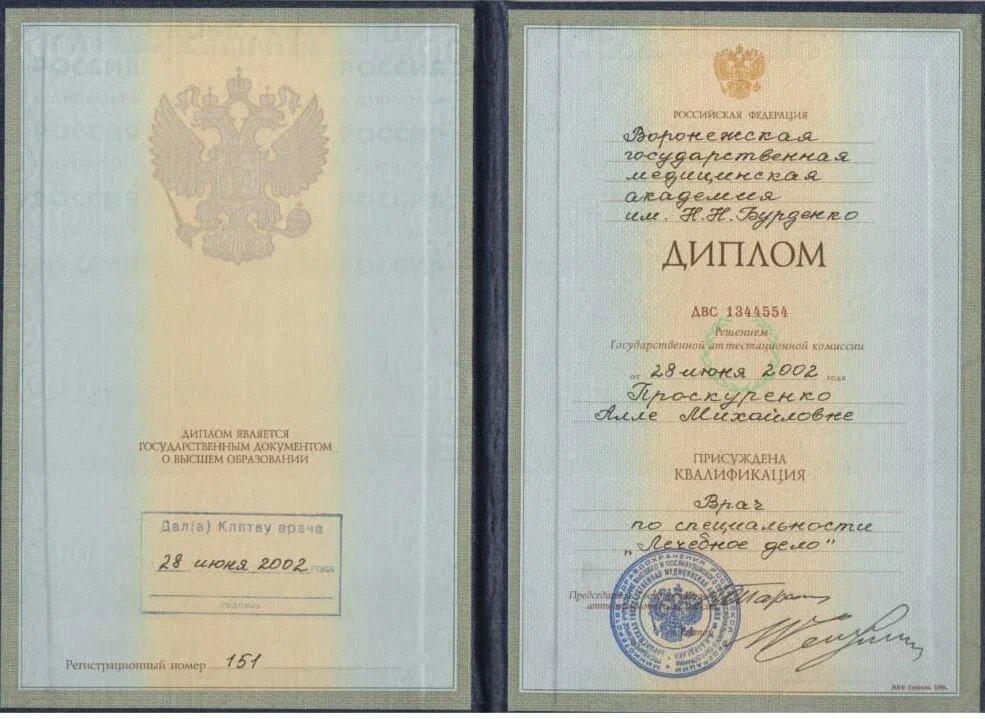 ДИПЛОМ ЯВЛЯЕТСЯ
ГОСУДАРСТВЕННЫМ ДОКУМЕНТОМ
О ВЫСШЕМ ОБРАЗОВАНИИ
Дал(а) Клятву врача
28 июня 2002 года
подпись
Регистрационный номер 151
РОССИЙСКАЯ ФЕДЕРАЦИЯ
Воронежская
государственная
медицинская
академия
им. Н.Н. Бурденко
ДИПЛОМ
ДВС 1344554
Решением
Государственной аттестационной комиссии
от 28 июня 2002 года
Проскуренко
Алле Михайловне
ПРИСУЖДЕНА
КВАЛИФИКАЦИЯ
Врач
по специальности
„Лечебное дело"